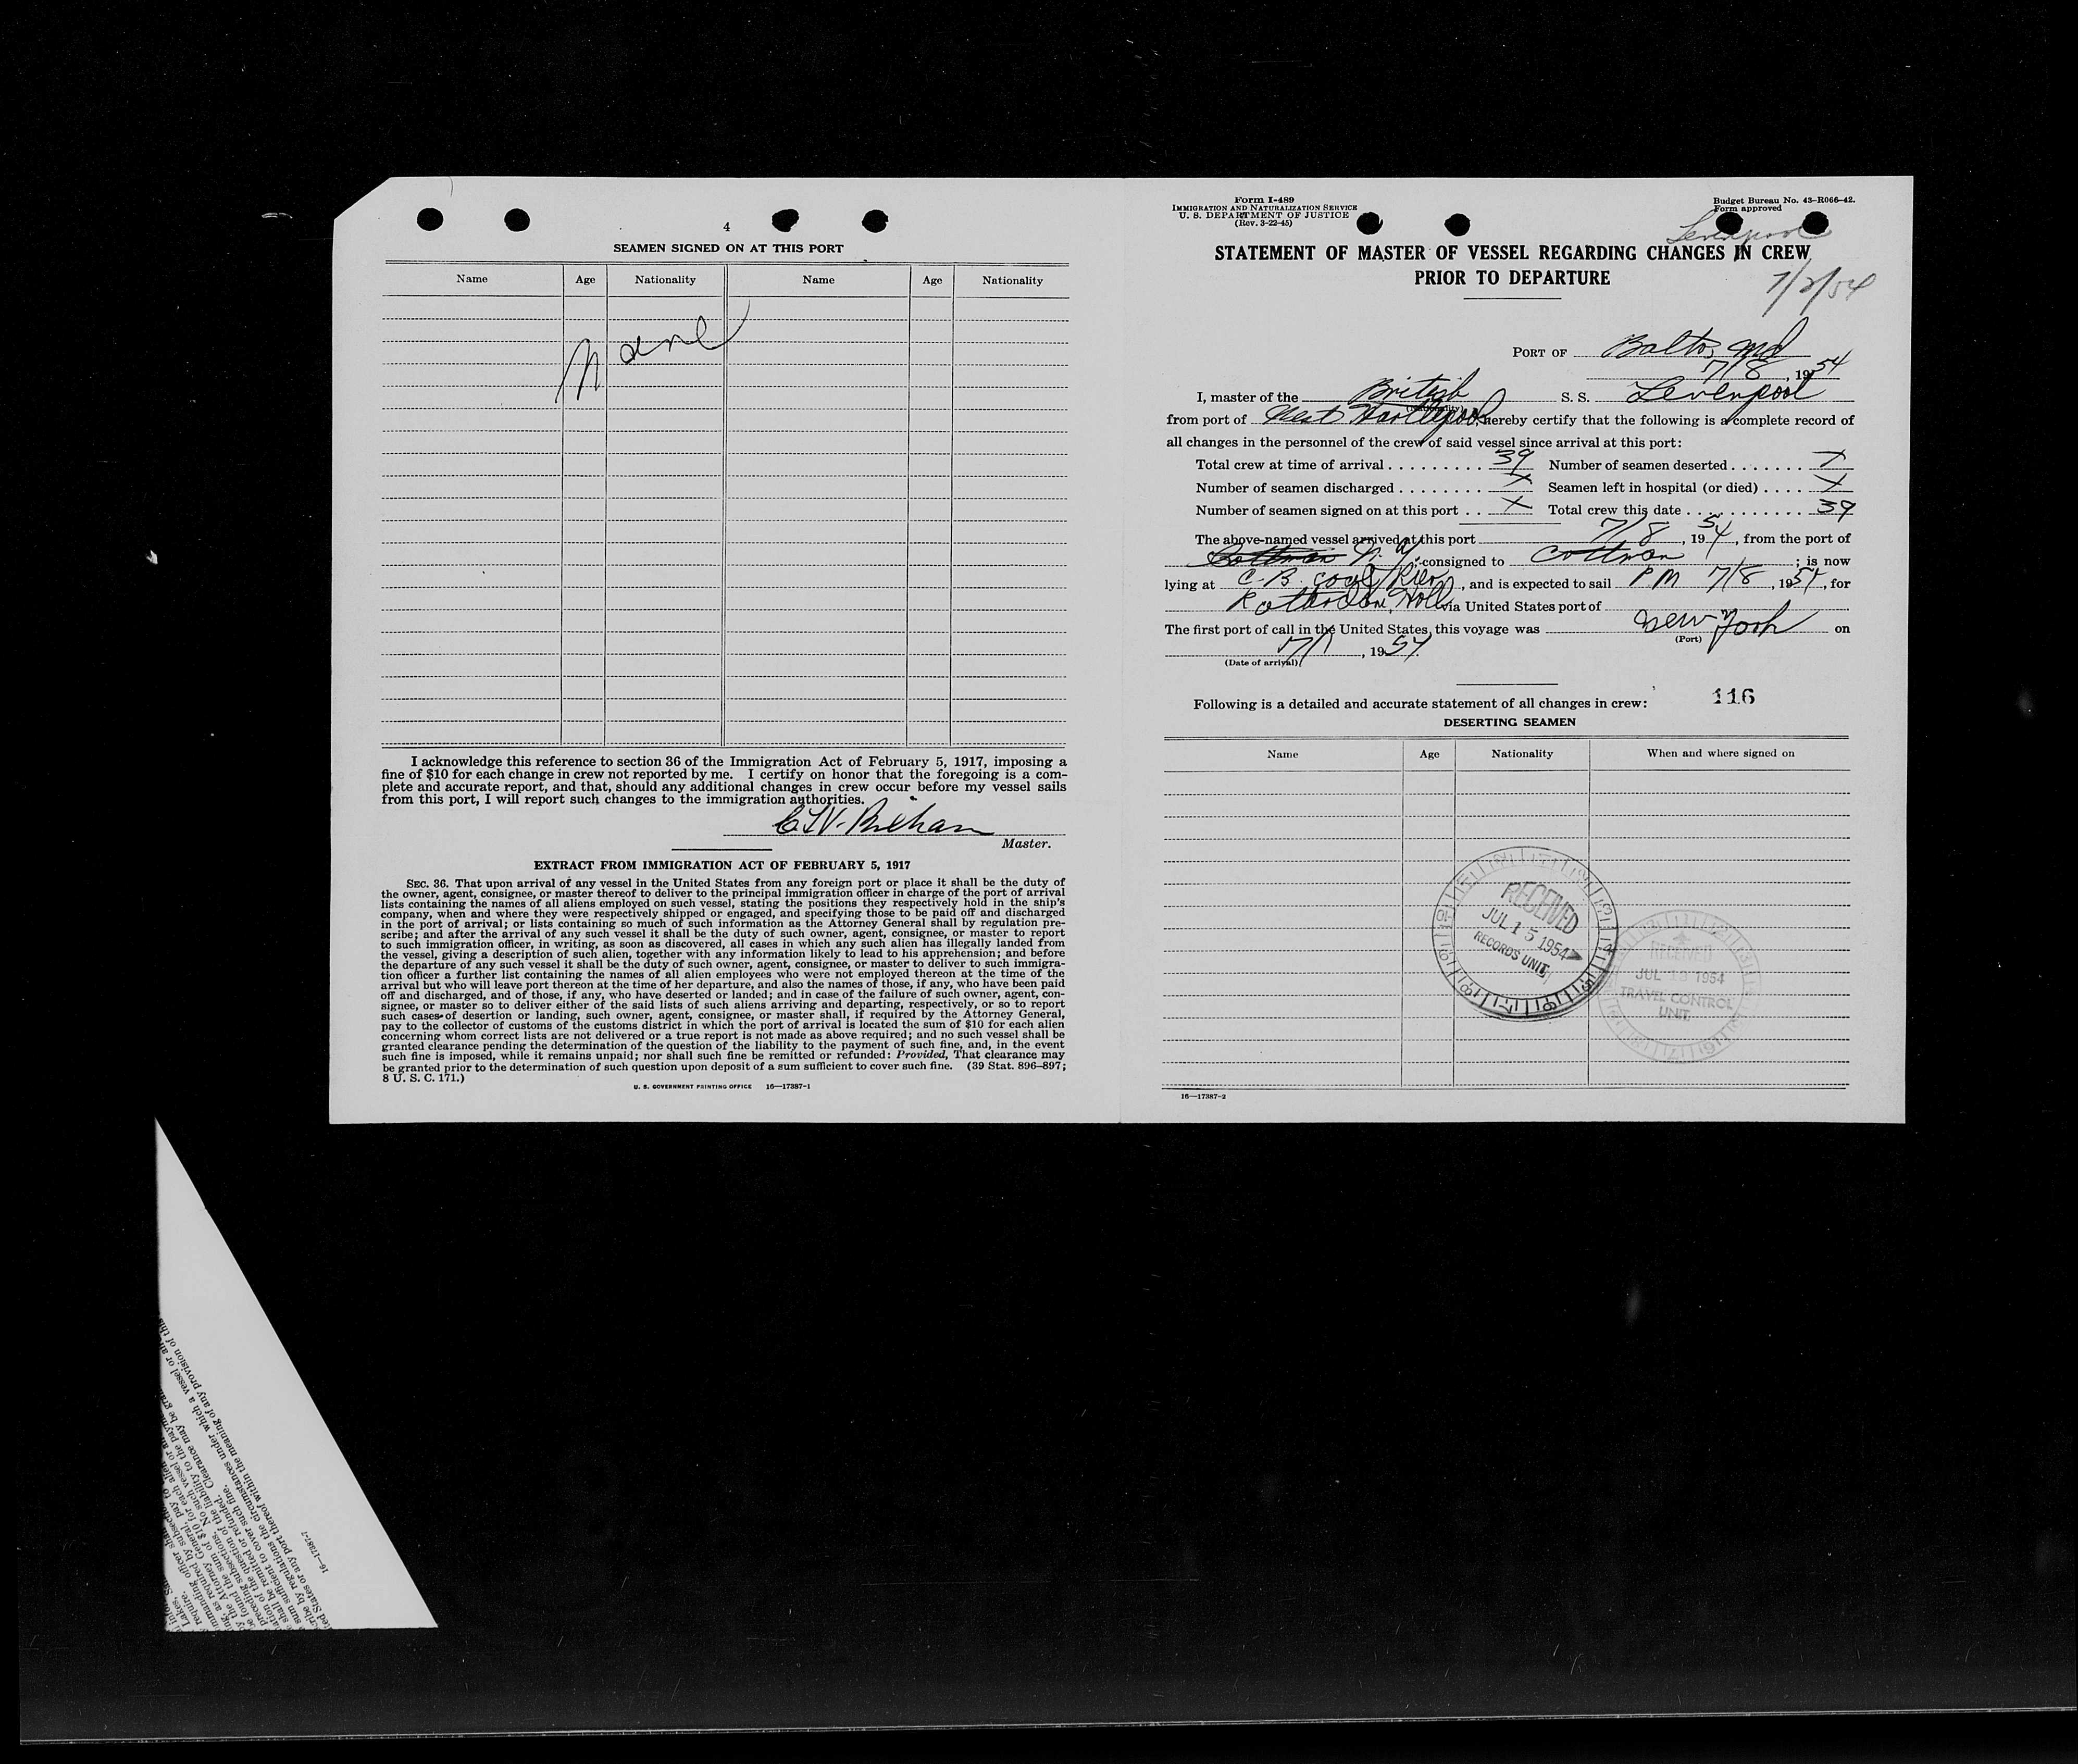 4
SEAMEN SIGNED ON AT THIS PORT
Name Age Nationality Name Age Nationality
None
I acknowledge this reference to section 36 of the Immigration Act of February 5, 1917, imposing a
fine of $10 for each change in crew not reported by me. I certify on honor that the foregoing is a com-
plete and accurate report, and that, should any additional changes in crew occur before my vessel sails
from this port, I will report such changes to the immigration authorities.
Master.
EXTRACT FROM IMMIGRATION ACT OF FEBRUARY 5, 1917
SEC. 36. That upon arrival of any vessel in the United States from any foreign port or place it shall be the duty of
the owner, agent, consignee, or master thereof to deliver to the principal immigration officer in charge of the port of arrival
lists containing the names of all aliens employed on such vessel, stating the positions they respectively hold in the ship's
company, when and where they were respectively shipped or engaged, and specifying those to be paid off and discharged
in the port of arrival; or lists containing so much of such information as the Attorney General shall by regulation pre-
scribe; and after the arrival of any such vessel it shall be the duty of such owner, agent, consignee, or master to report
to such immigration officer, in writing, as soon as discovered, all cases in which any such alien has illegally landed from
the vessel, giving a description of such alien, together with any information likely to lead to his apprehension; and before
the departure of any such vessel it shall be the duty of such owner, agent, consignee, or master to deliver to such immigra-
tion officer a further list containing the names of all alien employees who were not employed thereon at the time of the
arrival but who will leave port thereon at the time of her departure, and also the names of those, if any, who have been paid
off and discharged, and of those, if any, who have deserted or landed; and in case of the failure of such owner, agent, con-
signee, or master so to deliver either of the said lists of such aliens arriving and departing, respectively, or so to report
such cases of desertion or landing, such owner, agent, consignee, or master shall, if required by the Attorney General,
pay to the collector of customs of the customs district in which the port of arrival is located the sum of $10 for each alien
concerning whom correct lists are not delivered or a true report is not made as above required; and no such vessel shall be
granted clearance pending the determination of the question of the liability to the payment of such fine, and, in the event
such fine is imposed, while it remains unpaid; nor shall such fine be remitted or refunded: Provided, That clearance may
be granted prior to the determination of such question upon deposit of a sum sufficient to cover such fine. (39 Stat. 896-897;
8 U. S. C. 171.)
U. S. GOVERNMENT PRINTING OFFICE 16—17387-1
Form I-489
IMMIGRATION AND NATURALIZATION SERVICE
U. S. DEPARTMENT OF JUSTICE
(Rev. 3-22-45)
Budget Bureau No. 43-R066-42.
Form approved
Levenpool
STATEMENT OF MASTER OF VESSEL REGARDING CHANGES IN CREW
PRIOR TO DEPARTURE
PORT OF Balto, Md
7/8, 1954
I, master of the British S. S. Levenpool
(Nationality)
from port of West Hartlepool, hereby certify that the following is a complete record of
all changes in the personnel of the crew of said vessel since arrival at this port:
Total crew at time of arrival . . . . . . . . . 39 Number of seamen deserted . . . . . . . X
Number of seamen discharged . . . . . . . . X Seamen left in hospital (or died) . . . . X
Number of seamen signed on at this port . . X Total crew this date . . . . . . . . . . . 39
The above-named vessel arrived at this port 7/8, 1954, from the port of
N. Y. consigned to Cottman; is now
lying at C. B. Coal Pier, and is expected to sail P.M 7/8, 1954, for
Rotterdam, Holl via United States port of
The first port of call in the United States, this voyage was New York on
(Port)
, 1954
(Date of arrival)
Following is a detailed and accurate statement of all changes in crew: 116
DESERTING SEAMEN
Name Age Nationality When and where signed on
RECEIVED
JUL 15 1954
RECORDS UNIT
RECEIVED
JUL 13 1954
TRAVEL CONTROL
UNIT
16—17387-2
16—17387-7